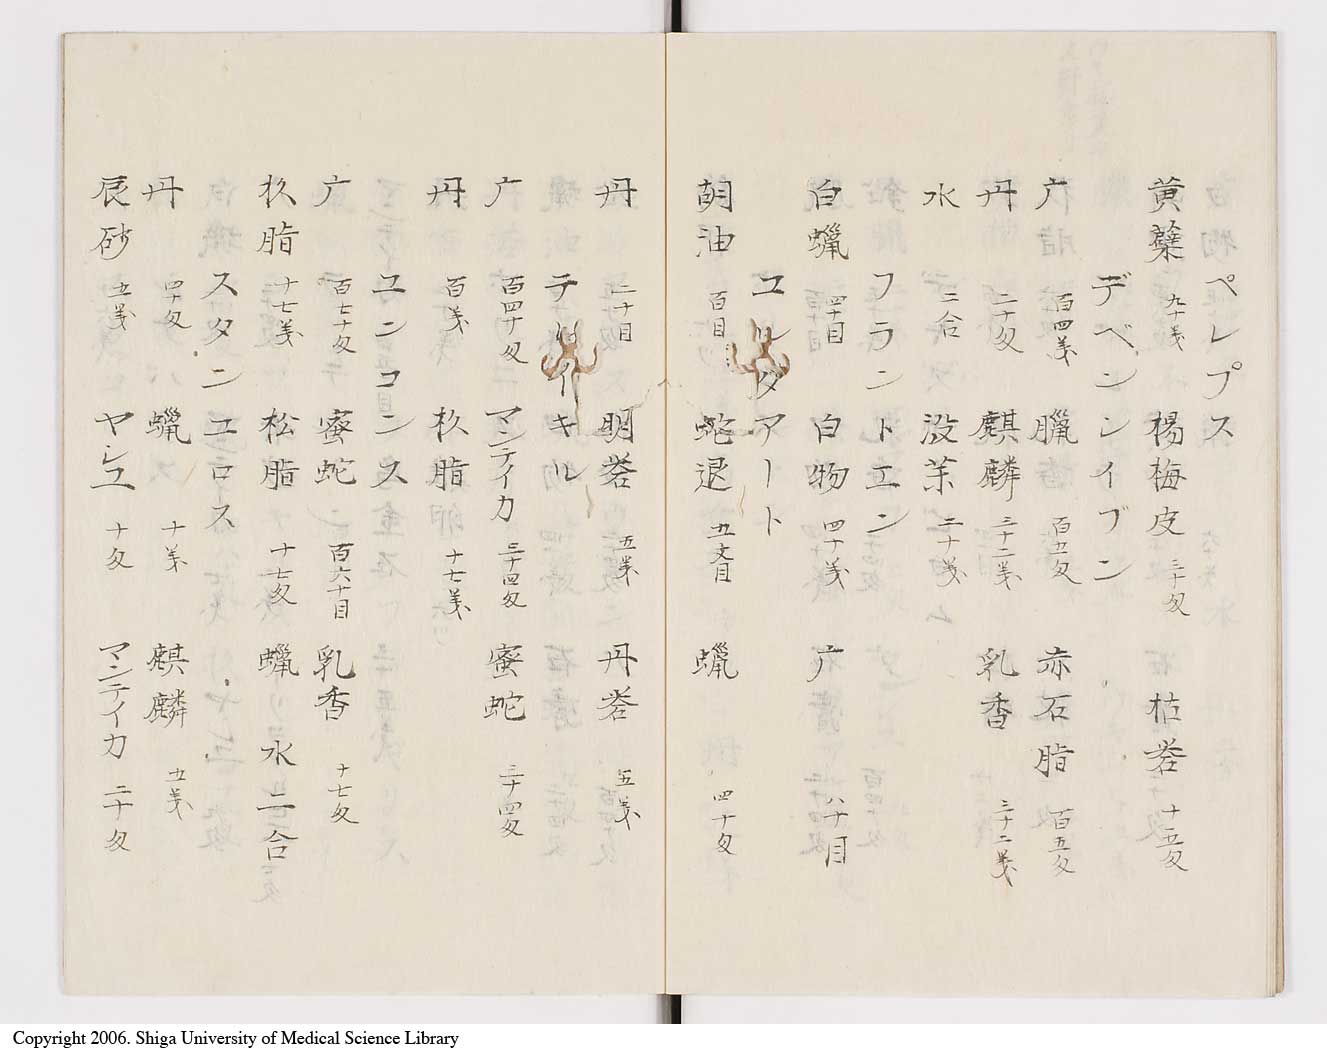 ペレプス
黄蘗 九十戔 楊梅皮 三十匁 枯礬 十五匁
デベンシイブン
广 百四戔 臘 百五匁 赤石脂 百五匁
丹 二十匁 麒麟 三十二戔 乳香 三十二戔
水 二合 没薬 二十戔
フラントエン
白蝋 四十目 白物 四十戔 广 八十目
ユルダアート
胡油 百目 蛇退 五文目 蝋 四十匁
丹 二十目 明礬 五戔 丹礬 五戔
テ イキル
广 百四十匁 マンテイカ 三十四匁 蜜蛇 三十四匁
丹 百戔 杦脂 十七戔
ユンコンス
广 百七十匁 蜜蛇 百六十目 乳香 十七匁
杦脂 十七戔 松脂 十七匁 蝋 水一合
スタンエロス
丹 四十匁 蝋 十戔 麒麟 五戔
辰砂 五戔 ヤシユ 十匁 マンテイカ 二十匁
Copyright 2006. Shiga University of Medical Science Library